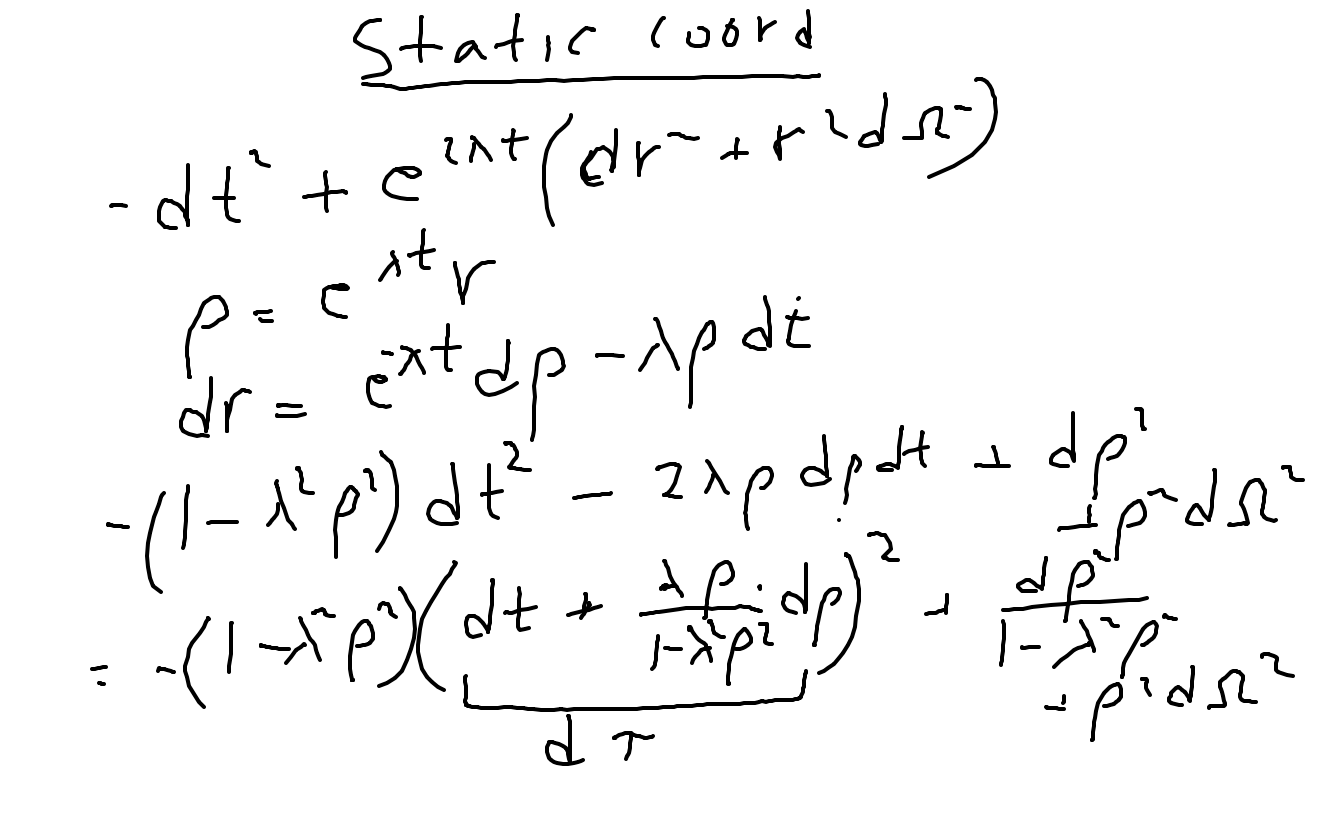 Static coord
-dt² + e^{2λt}(dr² + r²dΩ²)
ρ = e^{λt} r
dr = e^{-λt} dρ - λρ dt
-(1 - λ²ρ²) dt² - 2λρ dρ dt + dρ²
+ ρ² dΩ²
= -(1 - λ²ρ²)(dt + \frac{λρ}{1-λ²ρ²} dρ)² + \frac{dρ²}{1 - λ²ρ²}
+ ρ² dΩ²
dτ